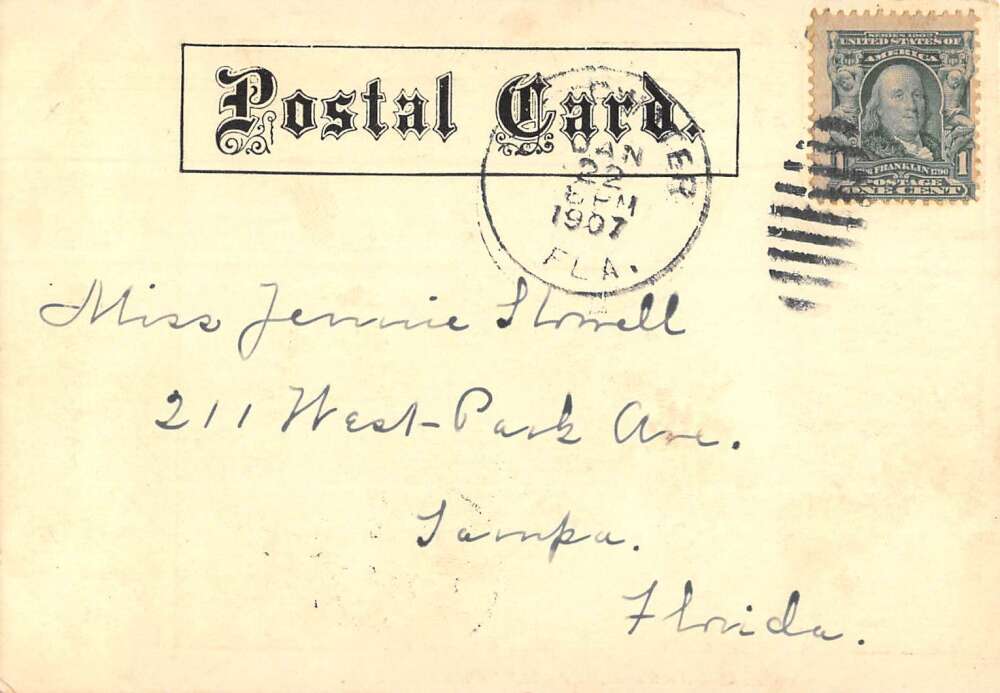 Postal Card.
SERIES 1902
UNITED STATES OF
AMERICA
1 FRANKLIN 1790 1
POSTAGE
ONE CENT
JAN
22
8 PM
1907
FLA.
Miss Jennie Stowell
211 West Park Ave.
Tampa.
Florida.